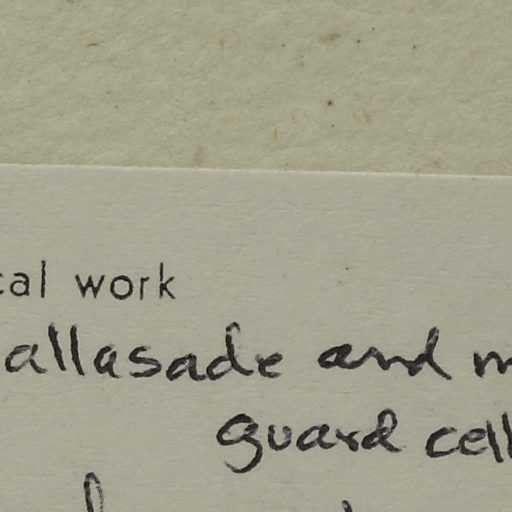 cal work
allasade and m
guard cell